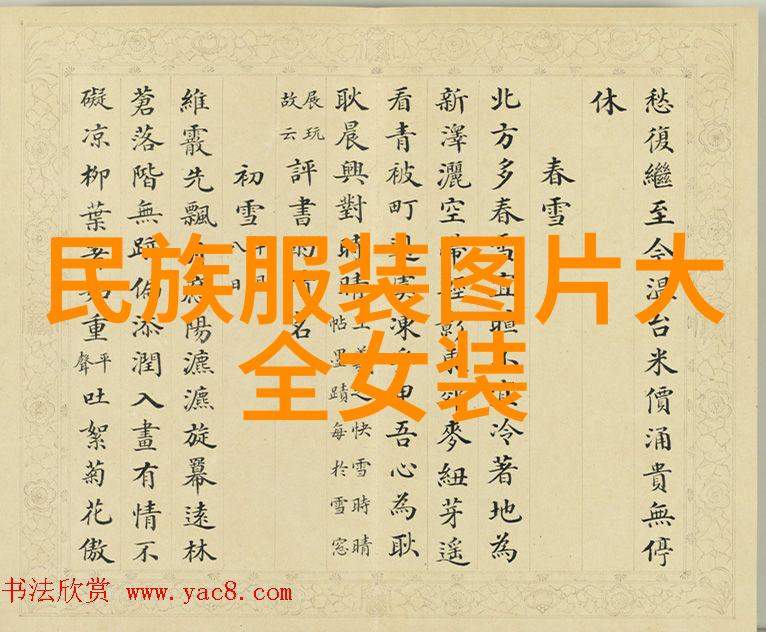 愁復繼至今溫台米價涌貴無停
休
春雪
北方多春雪宜冷著地為
新澤灑空麥紐芽遥
看青被町凍申吾心為耿
耿晨興對時晴
王羲之快雪時晴
帖墨蹟每於雪窓
展玩
故云
評書名
初雪
維霰先飄陽瀌瀌旋羃遠林
蒼落階無跡偏添潤入畫有情不
礙凉柳葉重平聲吐絮菊花傲
民族服装图片大
全女装
书法欣赏 www.yac8.com